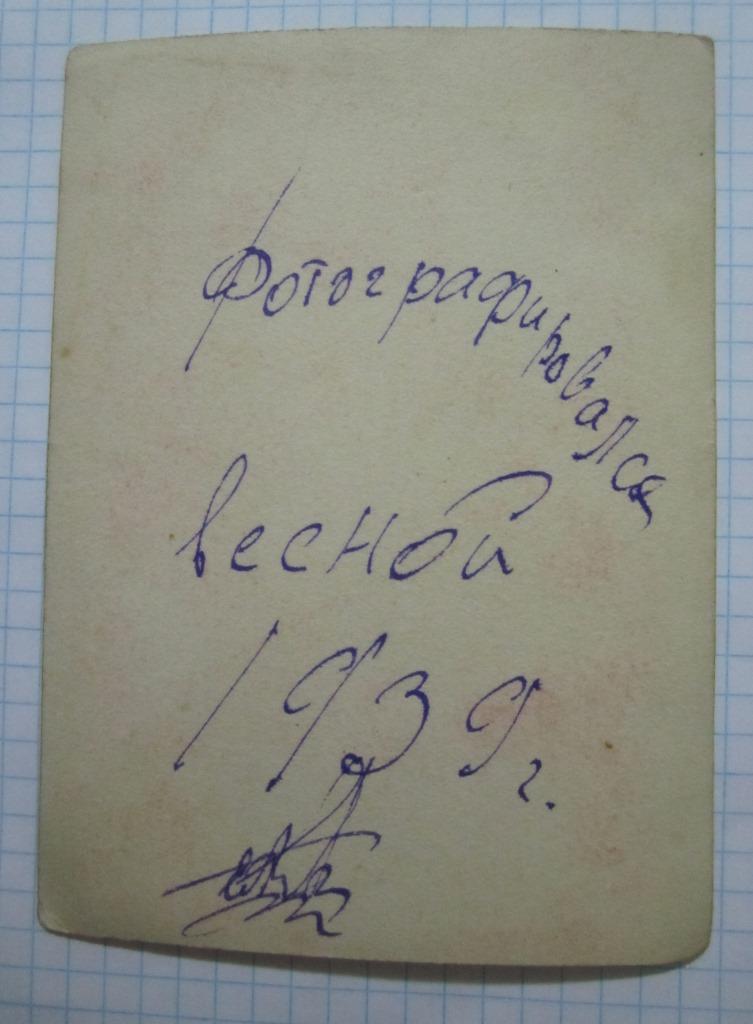 Фотографировался
весной
1939 г.